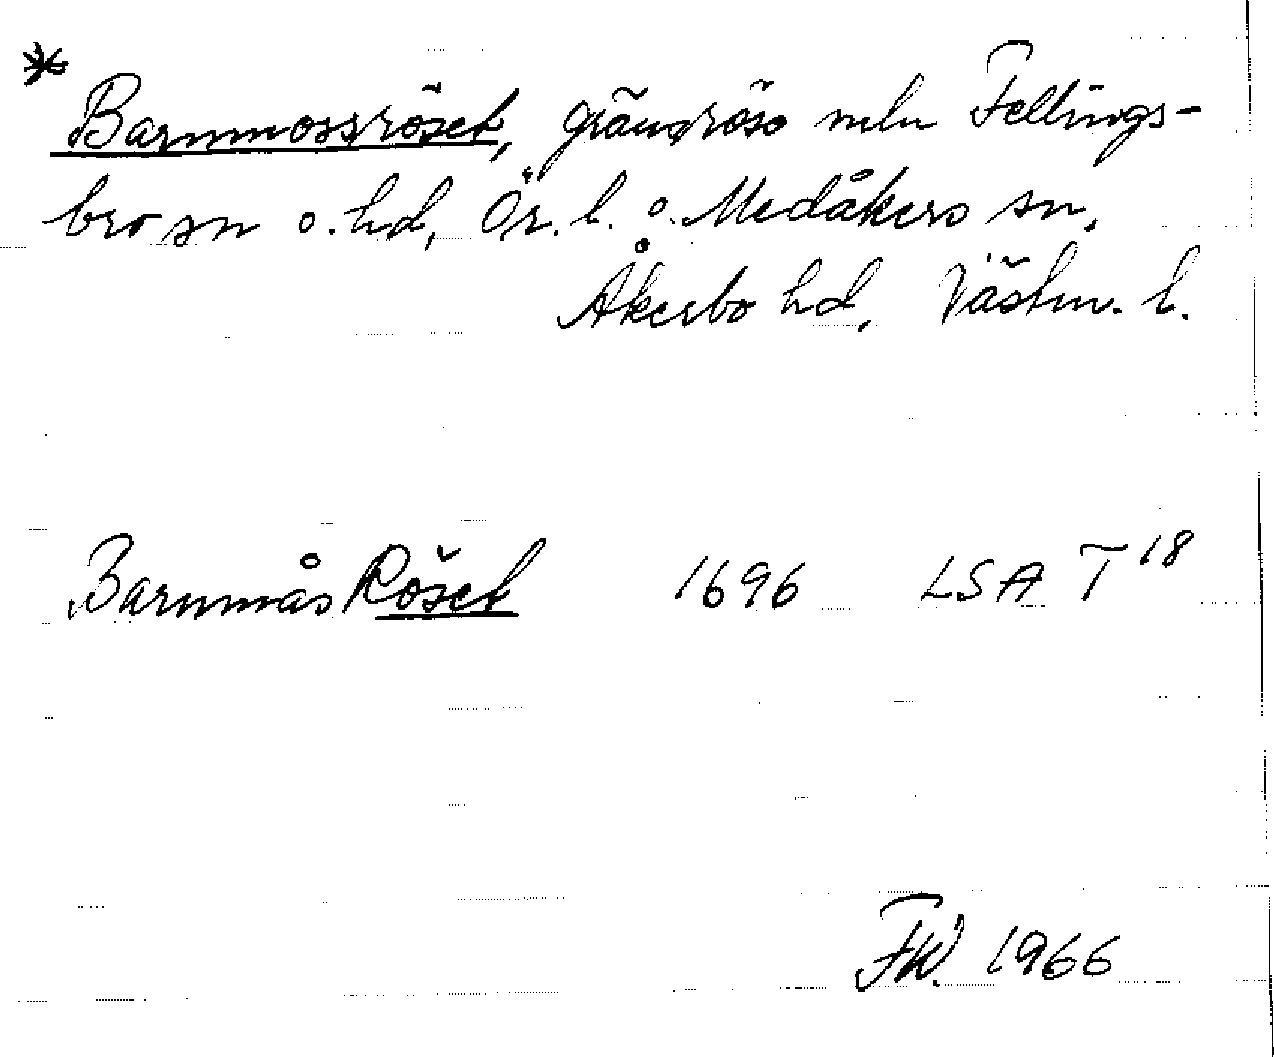 * Barnmossröset, gränsröse mln Fellings-
bro sn o. hd, Ör. l. o. Medåkers sn,
Åkerbo hd, Västm. l.
Barnmås Röset 1696 LSA T 18
FW. 1966